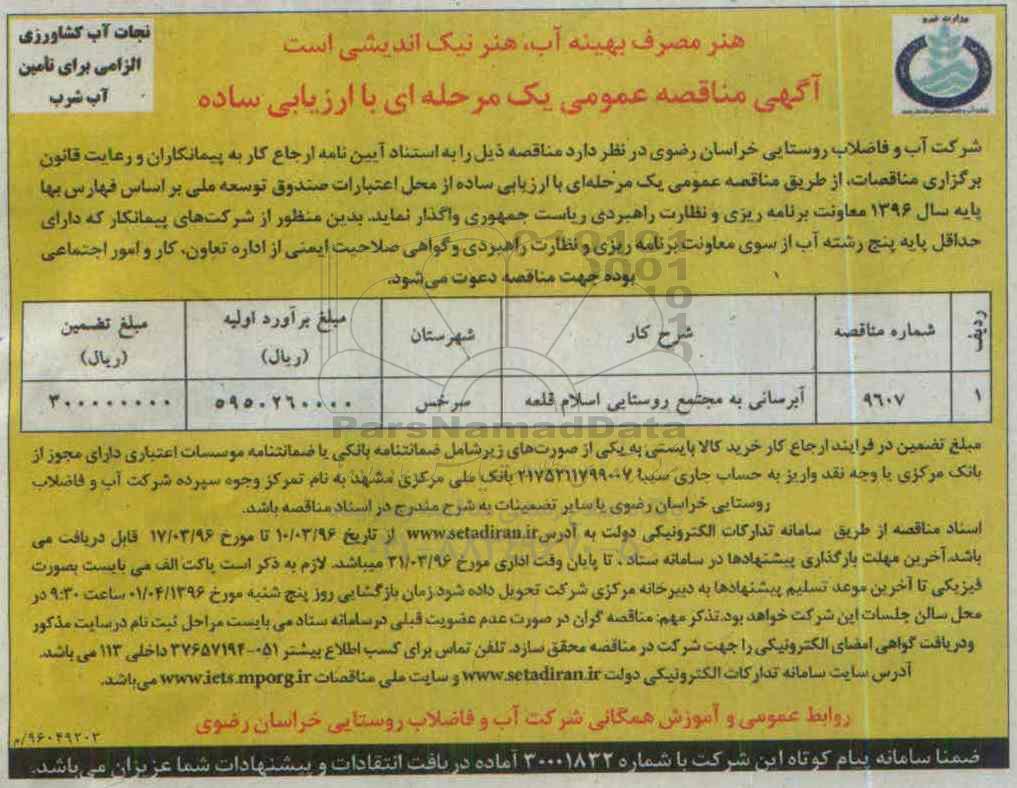 وزارت نیرو
نجات آب کشاورزی
الزامی برای تأمین
آب شرب
هنر مصرف بهینه آب، هنر نیک اندیشی است
آگهی مناقصه عمومی یک مرحله ای با ارزیابی ساده
شرکت آب و فاضلاب روستایی خراسان رضوی در نظر دارد مناقصه ذیل را به استناد آیین نامه ارجاع کار به پیمانکاران و رعایت قانون
برگزاری مناقصات، از طریق مناقصه عمومی یک مرحله‌ای با ارزیابی ساده از محل اعتبارات صندوق توسعه ملی بر اساس فهارس بها
پایه سال ۱۳۹۶ معاونت برنامه ریزی و نظارت راهبردی ریاست جمهوری واگذار نماید. بدین منظور از شرکت‌های پیمانکار که دارای
حداقل پایه پنج رشته آب از سوی معاونت برنامه ریزی و نظارت راهبردی و گواهی صلاحیت ایمنی از اداره تعاون، کار و امور اجتماعی
بوده جهت مناقصه دعوت می‌شود.
ردیف شماره مناقصه شرح کار شهرستان مبلغ برآورد اولیه (ریال) مبلغ تضمین (ریال)
۱ ۹۶۰۷ آبرسانی به مجتمع روستایی اسلام قلعه سرخس ۵۹۵۰۲۶۰۰۰۰ ۳۰۰۰۰۰۰۰۰
ParsNamadData
مبلغ تضمین در فرایند ارجاع کار خرید کالا بایستی به یکی از صورت‌های زیر شامل ضمانتنامه بانکی یا ضمانتنامه موسسات اعتباری دارای مجوز از
بانک مرکزی یا وجه نقد واریز به حساب جاری سیبا ۲۱۷۵۲۱۱۷۹۹۰۰۷ بانک ملی مرکزی مشهد به نام تمرکز وجوه سپرده شرکت آب و فاضلاب
روستایی خراسان رضوی یا سایر تضمینات به شرح مندرج در اسناد مناقصه باشد.
اسناد مناقصه از طریق سامانه تدارکات الکترونیکی دولت به آدرس www.setadiran.ir از تاریخ ۱۰/۰۳/۹۶ تا مورخ ۱۷/۰۳/۹۶ قابل دریافت می
باشد.آخرین مهلت بارگذاری پیشنهادها در سامانه ستاد ، تا پایان وقت اداری مورخ ۳۱/۰۳/۹۶ میباشد. لازم به ذکر است پاکت الف می بایست بصورت
فیزیکی تا آخرین موعد تسلیم پیشنهادها به دبیرخانه مرکزی شرکت تحویل داده شود.زمان بازگشایی روز پنج شنبه مورخ ۰۱/۰۴/۱۳۹۶ ساعت ۹:۳۰ در
محل سالن جلسات این شرکت خواهد بود.تذکر مهم: مناقصه گران در صورت عدم عضویت قبلی در سامانه ستاد می بایست مراحل ثبت نام در سایت مذکور
و دریافت گواهی امضای الکترونیکی را جهت شرکت در مناقصه محقق سازد. تلفن تماس برای کسب اطلاع بیشتر ۰۵۱-۳۷۶۵۷۱۹۴ داخلی ۱۱۳ می باشد.
آدرس سایت سامانه تدارکات الکترونیکی دولت www.setadiran.ir و سایت ملی مناقصات www.iets.mporg.ir می‌باشد.
روابط عمومی و آموزش همگانی شرکت آب و فاضلاب روستایی خراسان رضوی
۹۶۰۴۹۲۰۲/م
ضمنا سامانه پیام کوتاه این شرکت با شماره ۳۰۰۰۱۸۳۲ آماده دریافت انتقادات و پیشنهادات شما عزیزان می‌باشد.